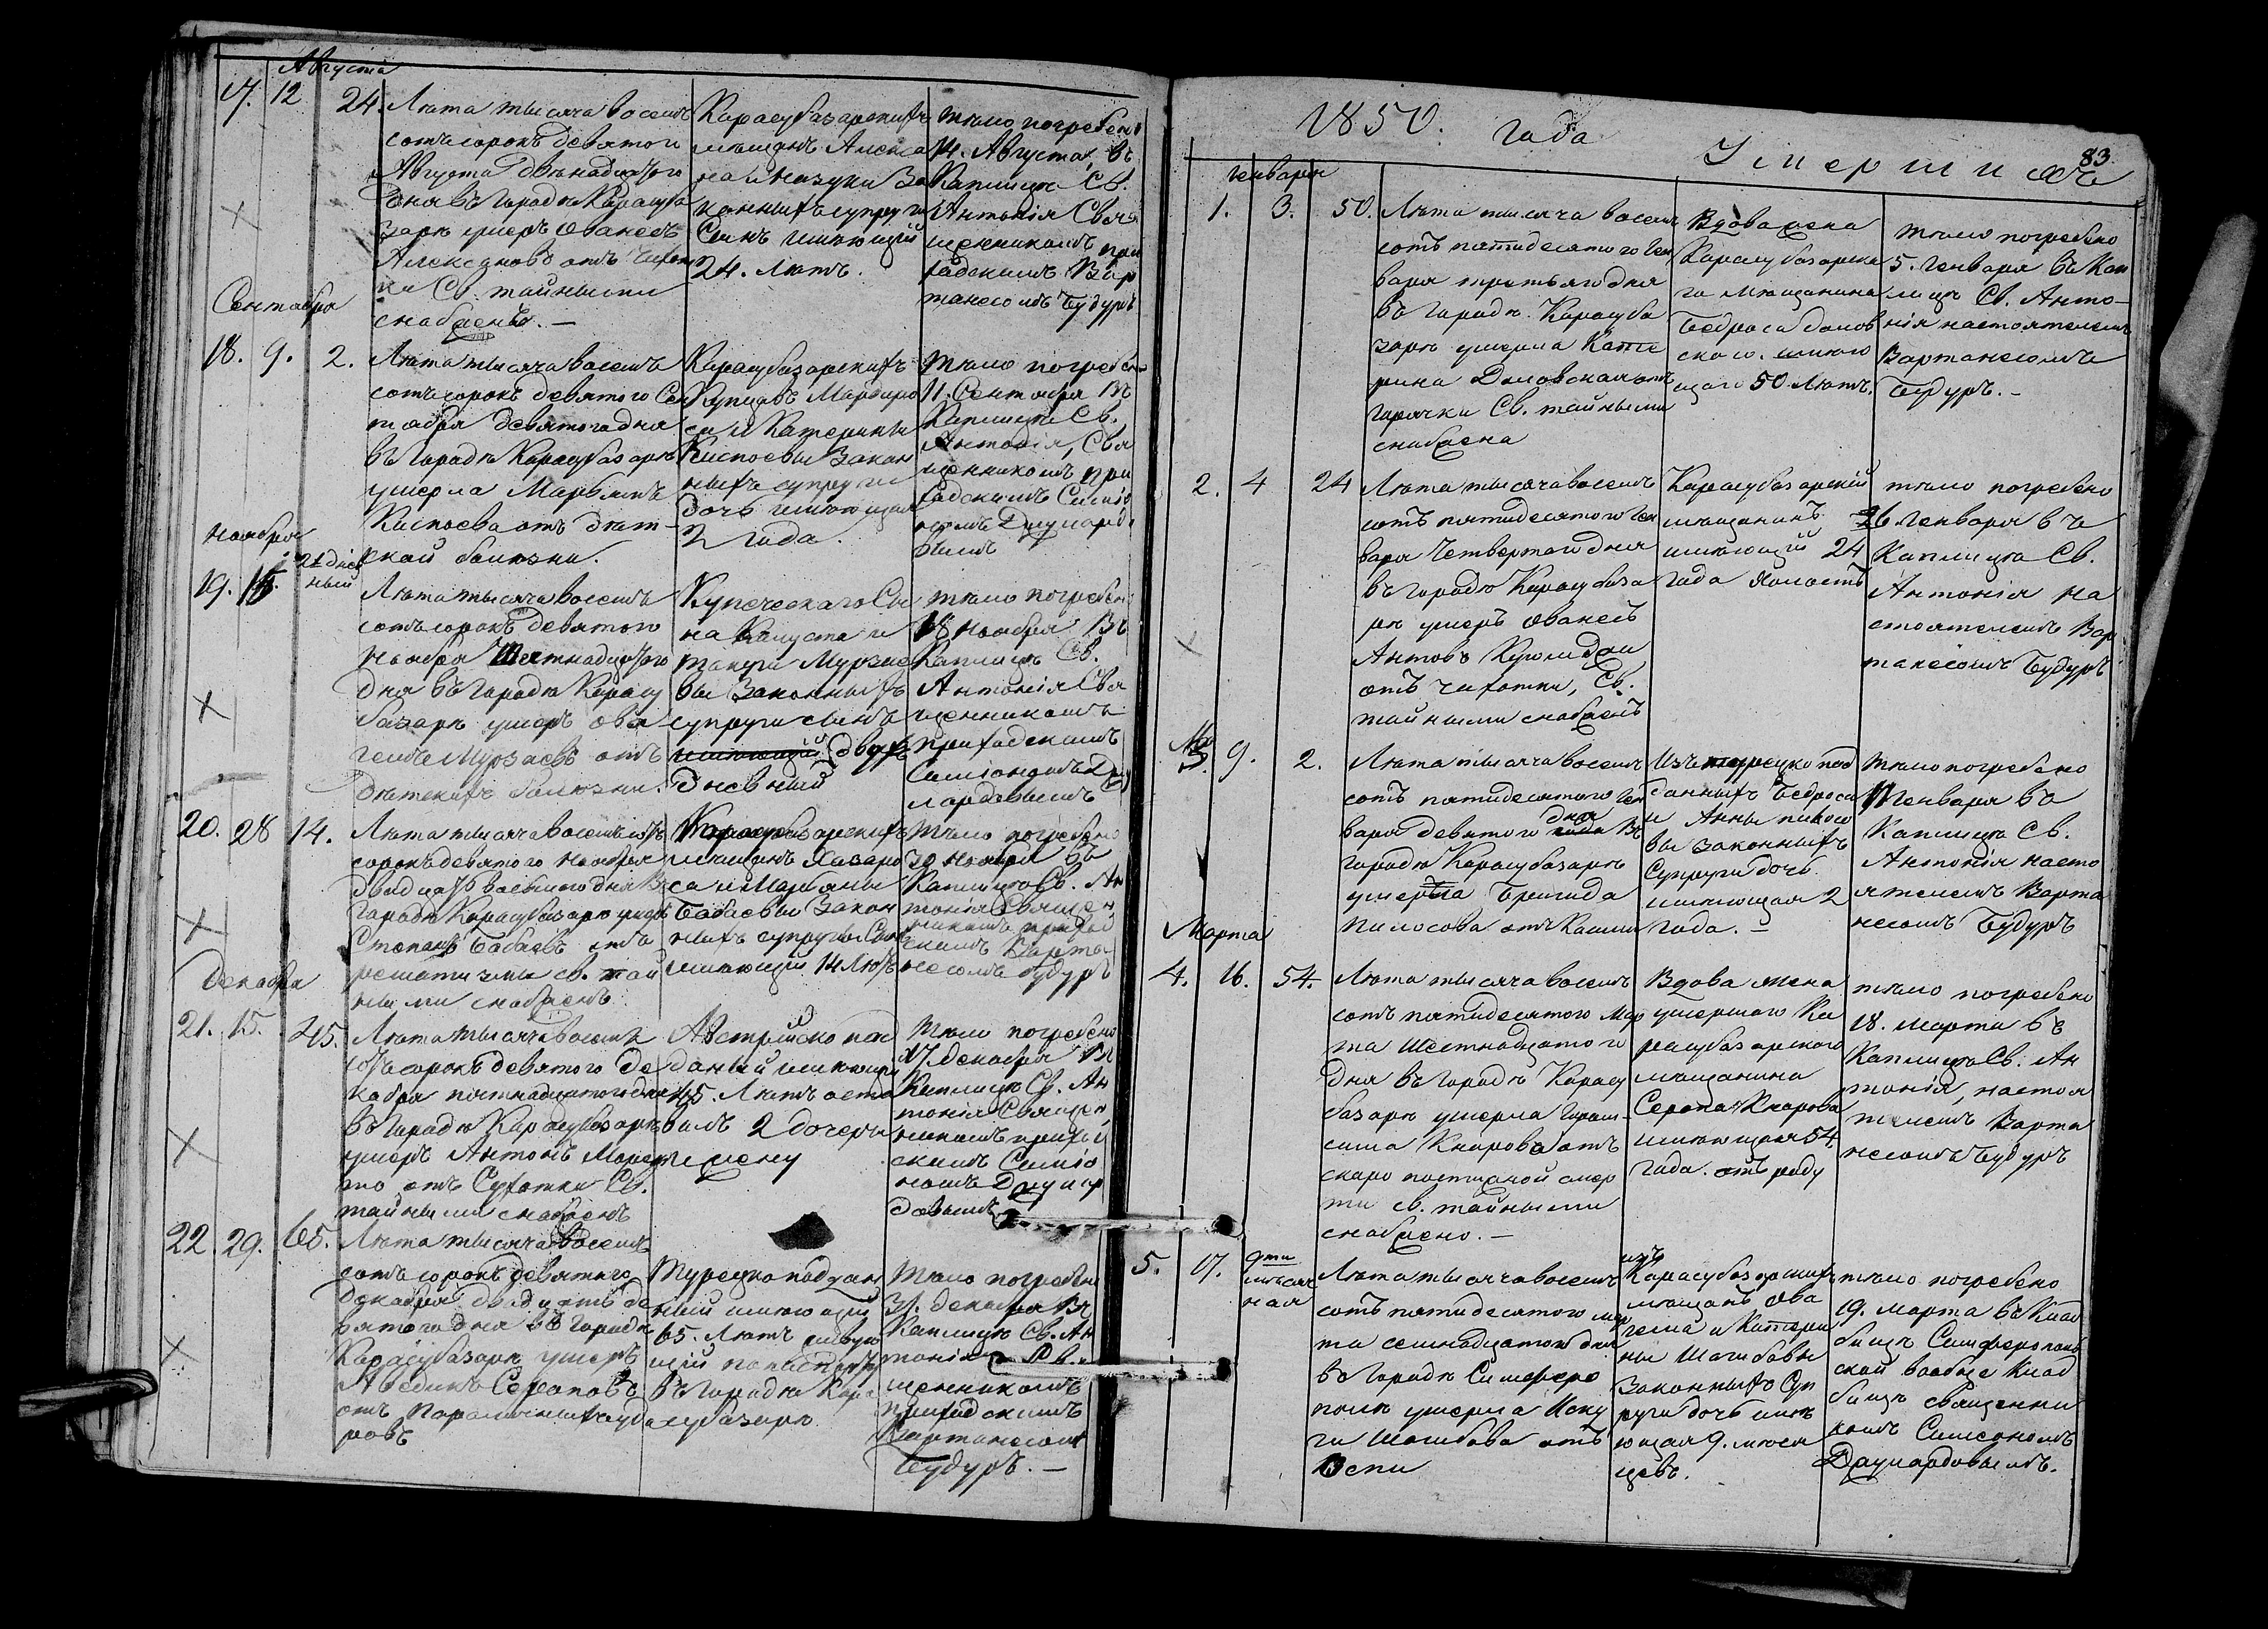 Августа
17. 12 24.
Лѣта тысяча восемъ
сотъ сорокъ девятого
Августа двѣнадцатого
дня въ городѣ Карасуба
зарѣ умеръ Ованесъ
отъ чахот
ки Св. тайными
снабженъ. —
Карасубазарскихъ
мещанъ Алекса
на и Назули За
конныхъ супруги
Сынъ имѣющій
24. лѣтъ.
тѣло погребено
14. Августа, въ
Каплицѣ Св.
Антонія Свя
щенникомъ при
ходскимъ Вар
танесомъ Будуръ
Сентября
18. 9. 2.
Лѣта тысяча восемъ
сотъ сорокъ девятого Сен
тября девятого дня
въ городѣ Карасубазарѣ
умерла Марьямъ
Киспоева отъ дѣт-
ской болѣзни.
Карасубазарскихъ
Купцовъ Мардиро
са и Катерины
Киспоевы Закон
ныхъ супруги
дочь имѣющая
2 года.
тѣло погребено
11. Сентября въ
Каплицѣ Св.
Антонія, Свя
щенникомъ при
ходскимъ Симіо
номъ Джумардо
вымъ
Ноября
19. 16. 2х днев
ный
Лѣта тысяча восемъ
сотъ сорокъ девятого
Ноября Шестнадцатого
дня въ городѣ Карасу
базарѣ умеръ Ова
гемъ Мурзаевъ отъ
дѣтскихъ болѣзни.
Купеческаго Сы
на Августа и
Такуги Мурзае
вы Законныхъ
супруги сынъ
имѣющій двухъ
дневный
тѣло погребено
18 Ноября въ
Каплицѣ Св.
Антонія Свя
щенникомъ
приходскимъ
Симіономъ Джу
мардовымъ
20. 28 14.
Лѣта тысяча восемъ сотъ
сорокъ девятого Ноября
двадцать восьмого дня въ
городѣ Карасубазарѣ умеръ
Степанъ Бабаевъ отъ
ревматизмы св. тай
ными снабженъ
Карасубазарскихъ
мещанъ Хазаро
са и Марьяны
Бабаевы Закон
ныхъ супруги Сынъ
имѣющій 14 лѣтъ
тѣло погребено
30 Ноября въ
Каплицѣ Св. Ан
тонія Священ
никомъ приход
скимъ Варта
несомъ Будуръ
Декабря
21. 15. 45.
Лѣта тысяча восемъ
сотъ сорокъ девятого Де
кабря пятнадцатого дня
въ городѣ Карасубазарѣ
умеръ Антонъ
отъ Сухотки Св.
тайными снабженъ
Австрійско под
даный имѣющій
45. лѣтъ оста
вилъ 2 дочери
и жену
тѣло погребено
17. декабря въ
Каплицѣ Св. Ан
тонія Священ
никомъ приход
скимъ Симіо
номъ Джумар
довымъ
22. 29. 65.
Лѣта тысяча восемъ
сотъ сорокъ девятого
Декабря двадцать де
вятого дня въ городѣ
Карасубазарѣ умеръ
Аведикъ Сероповъ
отъ Параличныхъ уда
ровъ
Турецко поддан
ный имѣющій
65. лѣтъ
щій по паспорту
въ городѣ Кара
субазарѣ
тѣло погребено
31. декабря въ
Каплицѣ Св. Ан
тонія Свя
щенникомъ
приходскимъ
Вартанесомъ
Будуръ. —
83
1850. года Умершихъ
Генваря
1. 3. 50.
Лѣта тысяча восемъ
сотъ пятидесятого Ген
варя третьяго дня
въ городѣ Карасуба
зарѣ умерла Кате
рина Домовская отъ
горячки Св. тайными
снабжена
Вдова жена
Карасубазарска
го мещанина
Бедроса Домов
скаго. имѣю
щаго 50 лѣтъ.
тѣло погребено
5. Генваря въ Кап
лицѣ Св. Анто-
нія настоятелемъ
Вартанесомъ
Будуръ. —
2. 4 24
Лѣта тысяча восемъ
сотъ пятидесятого Ген
варя Четвертого дня
въ городѣ Карасуба за
рѣ умеръ Ованесъ
Антовъ
отъ чахотки, Св.
тайными снабженъ
Карасубазарскій
мещанинъ
имѣющій 24
года холостъ
тѣло погребено
26 Генваря въ
Каплицѣ Св.
Антонія на
стоятелемъ Вар
танесомъ Будуръ
3. 9. 2.
Лѣта тысяча восемъ
сотъ пятидесятого Ген
варя девятого дня въ
городѣ Карасубазарѣ
умерла Бригида
Пилосова отъ Кашли
Изъ турецко под
данныхъ Бедроса
и Анны Пилосо
вы законныхъ
Супруги дочь
имѣющая 2
года. —
тѣло погребено
11 Генваря въ
Каплицѣ Св.
Антонія насто
ятелемъ Варта
несомъ Будуръ
Марта
4. 16. 54.
Лѣта тысяча восемъ
сотъ пятидесятого Мар
та Шестнадцатого
дня въ городѣ Карасу
базарѣ умерла
Кнарова отъ
скоро постижной смер
ти св. тайными
снабжено. —
Вдова жена
умершаго Ка
расубазарского
мещанина
Серопа Кнарова
имѣющая 54
года. отъ роду
тѣло погребено
18. Марта въ
Каплицѣ Св. Ан
тонія, настоя
телемъ Варта
несомъ Будуръ
5. 17. 9ти
мѣсяч
ная
Лѣта тысяча восемъ
сотъ пятидесятого мар
та семнадцатого дня
въ городѣ Симферо
полѣ умерла Иску
ги Шагибова отъ
Оспи
изъ
Карасубазарскихъ
мещанъ Ова
гема и Катери
ны Шагибовы
Законныхъ Суп
руги дочь имѣ
ющая 9. мѣся
цевъ.
тѣло погребено
19. Марта въ Клад
бищѣ Симферополь
ской вообще Клад
бищѣ священни
комъ Симеономъ
Джумардовымъ.